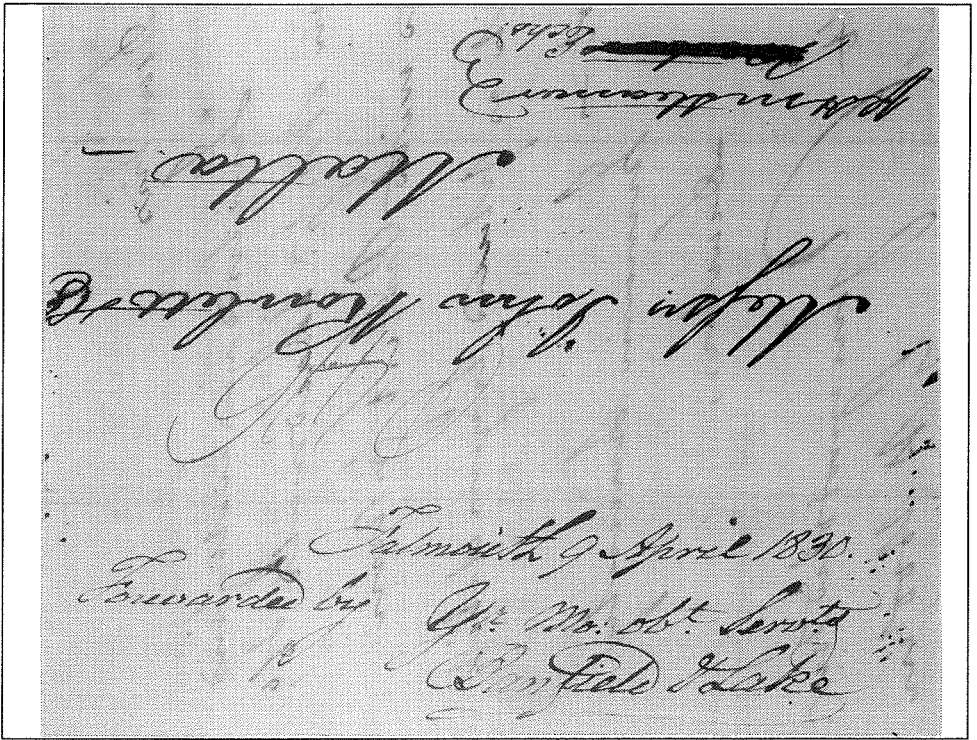 Messrs. John & Co
Malta —
Steamer
Echo
Falmouth 9 April 1830.
Forwarded by Yr. Mo: obt. Servts
Banfield & Lake